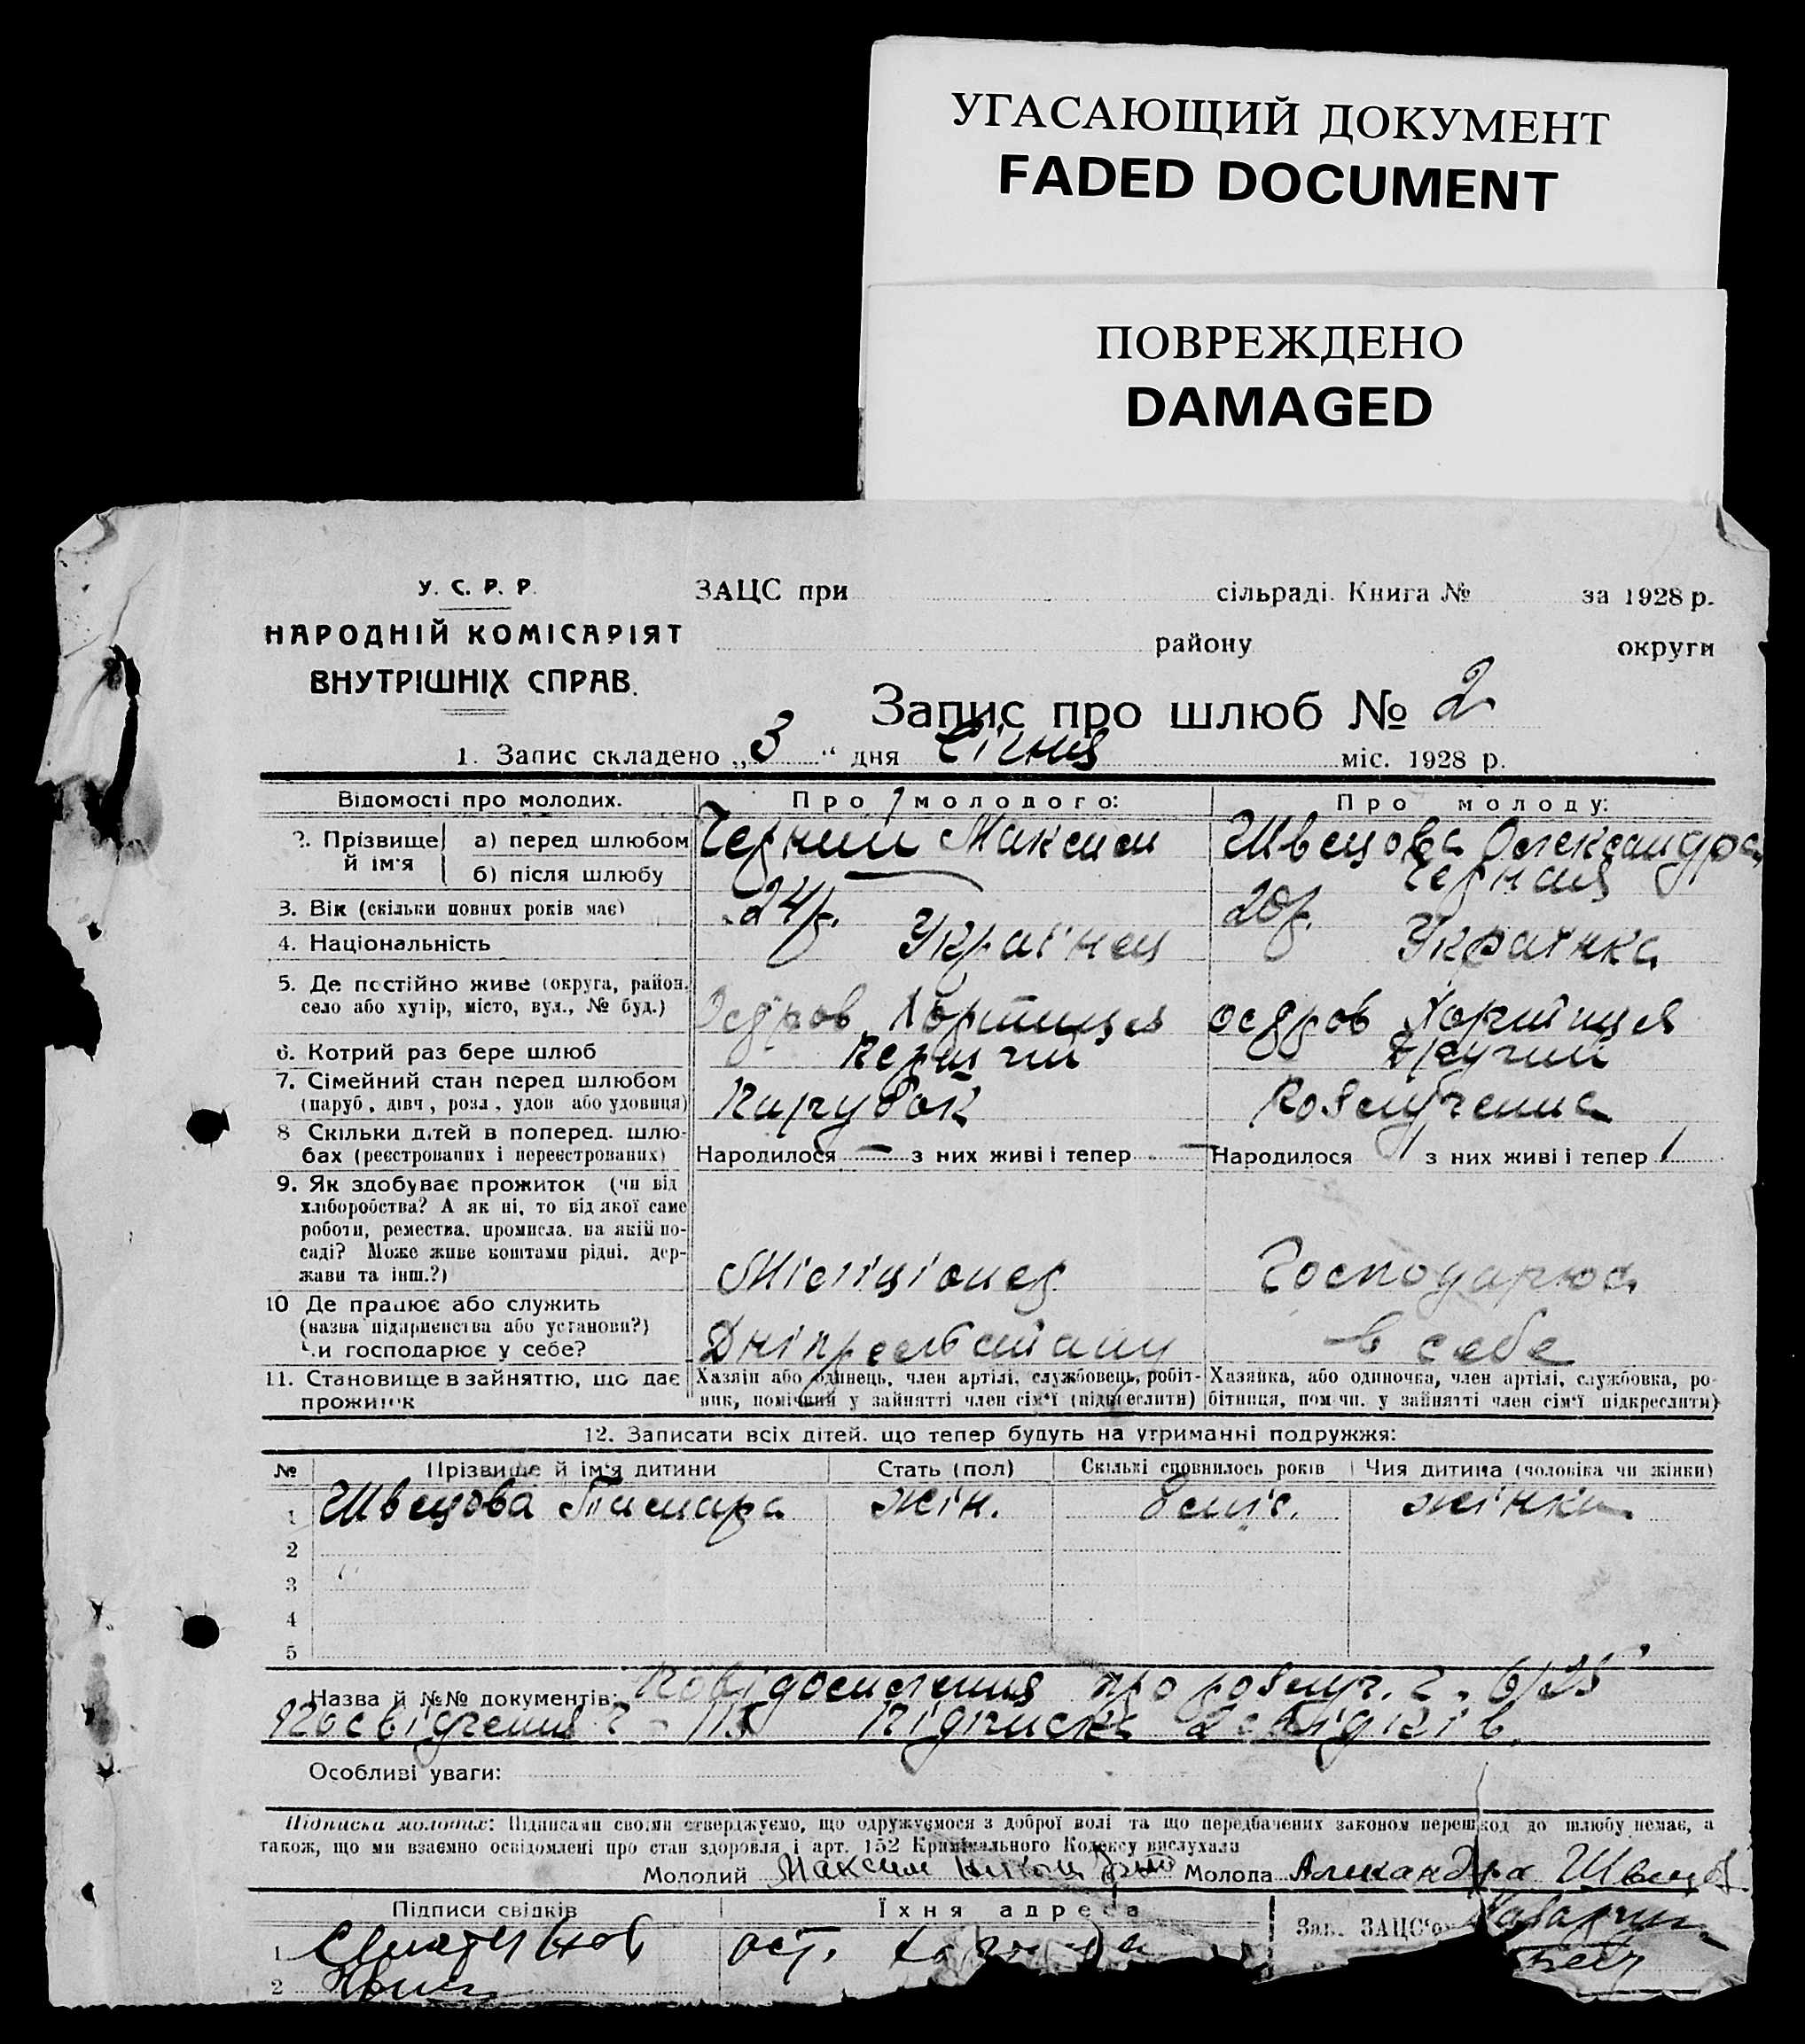 УГАСАЮЩИЙ ДОКУМЕНТ
FADED DOCUMENT
ПОВРЕЖДЕНО
DAMAGED
У. С. Р. Р.
НАРОДНІЙ КОМІСАРІЯТ
ВНУТРІШНІХ СПРАВ.
ЗАЦС при сільраді. Книга № за 1928 р.
району округи
Запис про шлюб № 2
1. Запис складено „3“ дня Січня міс. 1928 р.
Відомості про молодих. Про молодого: Про молоду:
2. Прізвище й ім'я а) перед шлюбом Черний Максим Швецова Олександра
б) після шлюбу Черная
3. Вік (скільки повних років має) 24р. 20р.
4. Національність Українец Українка
5. Де постійно живе (округа, район,
село або хутір, місто, вул., № буд.) Остров Хортиця остров Хортиця
6. Котрий раз бере шлюб Перший Другий
7. Сімейний стан перед шлюбом
(паруб., дівч., розл., удов. або удовиця) Парубок Розлучена
8 Скільки дітей в поперед. шлю-
бах (реєстрованих і нереєстрованих) Народилося — з них живі і тепер — Народилося 1 з них живі і тепер 1
9. Як здобуває прожиток (чи від
хліборобства? А як ні, то від якої саме
роботи, ремества, промисла, на якій по-
саді? Може живе коштами рідні, дер-
жави та інш.?) Міліціонер Господарює
10 Де працює або служить
(назва підприємства або установи?)
Чи господарює у себе? в себе
11. Становище в зайняттю, що дає
прожиток
Хазяїн або одинець, член артілі, службовець, робіт-
ник, помічний у зайнятті член сім'ї (підкреслити)
Хазяйка, або одиночка, член артілі, службовка, ро-
бітниця, поміч. у зайнятті член сім'ї підкреслити)
12. Записати всіх дітей, що тепер будуть на утриманні подружжя:
№ Прізвище й ім'я дитини Стать (пол) Скількі сповнилось років Чия дитина (чоловіка чи жінки)
1 Швецова Тамара жін. 8 міс. жінки
2
3
4
5
Назва й №№ документів: про розлуч. ч. 6/25
Посвідчення ч. Підписка
Особливі уваги:
Підписка молодих: Підписами своїми стверджуємо, що одружуємося з доброї волі та що передбачених законом перешкод до шлюбу немає, а
також, що ми взаємно освідомлені про стан здоровля і арт. 152 Кримінального Кодексу вислухали
Молодий Максим Молода Александра Швецов
Підписи свідків Їхня адреса Зав. ЗАЦС'ом
1 ост. Хортица
2